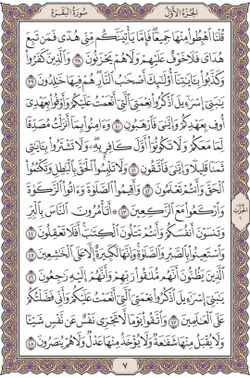 الجزء الأول
سورة البقرة
قُلْنَا ٱهْبِطُوا۟ مِنْهَا جَمِيعًا فَإِمَّا يَأْتِيَنَّكُم مِّنِّى هُدًى فَمَن تَبِعَ
هُدَاىَ فَلَا خَوْفٌ عَلَيْهِمْ وَلَا هُمْ يَحْزَنُونَ ٣٨ وَٱلَّذِينَ كَفَرُوا۟
وَكَذَّبُوا۟ بِـَٔايَـٰتِنَآ أُو۟لَـٰٓئِكَ أَصْحَـٰبُ ٱلنَّارِ هُمْ فِيهَا خَـٰلِدُونَ ٣٩
يَـٰبَنِىٓ إِسْرَٰٓءِيلَ ٱذْكُرُوا۟ نِعْمَتِىَ ٱلَّتِىٓ أَنْعَمْتُ عَلَيْكُمْ وَأَوْفُوا۟ بِعَهْدِىٓ
أُوفِ بِعَهْدِكُمْ وَإِيَّـٰىَ فَٱرْهَبُونِ ٤٠ وَءَامِنُوا۟ بِمَآ أَنزَلْتُ مُصَدِّقًا
لِّمَا مَعَكُمْ وَلَا تَكُونُوٓا۟ أَوَّلَ كَافِرٍۭ بِهِۦ وَلَا تَشْتَرُوا۟ بِـَٔايَـٰتِى
ثَمَنًا قَلِيلًا وَإِيَّـٰىَ فَٱتَّقُونِ ٤١ وَلَا تَلْبِسُوا۟ ٱلْحَقَّ بِٱلْبَـٰطِلِ وَتَكْتُمُوا۟
ٱلْحَقَّ وَأَنتُمْ تَعْلَمُونَ ٤٢ وَأَقِيمُوا۟ ٱلصَّلَوٰةَ وَءَاتُوا۟ ٱلزَّكَوٰةَ
وَٱرْكَعُوا۟ مَعَ ٱلرَّٰكِعِينَ ٤٣ أَتَأْمُرُونَ ٱلنَّاسَ بِٱلْبِرِّ
وَتَنسَوْنَ أَنفُسَكُمْ وَأَنتُمْ تَتْلُونَ ٱلْكِتَـٰبَ أَفَلَا تَعْقِلُونَ ٤٤
وَٱسْتَعِينُوا۟ بِٱلصَّبْرِ وَٱلصَّلَوٰةِ وَإِنَّهَا لَكَبِيرَةٌ إِلَّا عَلَى ٱلْخَـٰشِعِينَ ٤٥
ٱلَّذِينَ يَظُنُّونَ أَنَّهُم مُّلَـٰقُوا۟ رَبِّهِمْ وَأَنَّهُمْ إِلَيْهِ رَٰجِعُونَ ٤٦
يَـٰبَنِىٓ إِسْرَٰٓءِيلَ ٱذْكُرُوا۟ نِعْمَتِىَ ٱلَّتِىٓ أَنْعَمْتُ عَلَيْكُمْ وَأَنِّى فَضَّلْتُكُمْ
عَلَى ٱلْعَـٰلَمِينَ ٤٧ وَٱتَّقُوا۟ يَوْمًا لَّا تَجْزِى نَفْسٌ عَن نَّفْسٍ شَيْـًٔا
وَلَا يُقْبَلُ مِنْهَا شَفَـٰعَةٌ وَلَا يُؤْخَذُ مِنْهَا عَدْلٌ وَلَا هُمْ يُنصَرُونَ ٤٨
٧